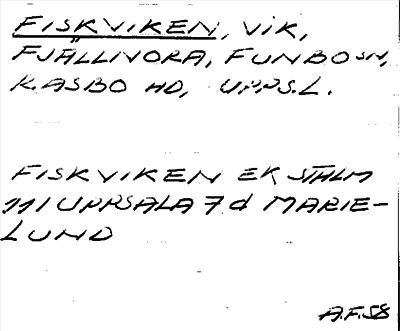 FISKVIKEN, VIK,
FJÄLLNORA, FUNBO SN,
RASBO HD, UPPS.L.
FISKVIKEN EK STHLM
111 UPPSALA 7 d MARIE-
LUND
A.F.58